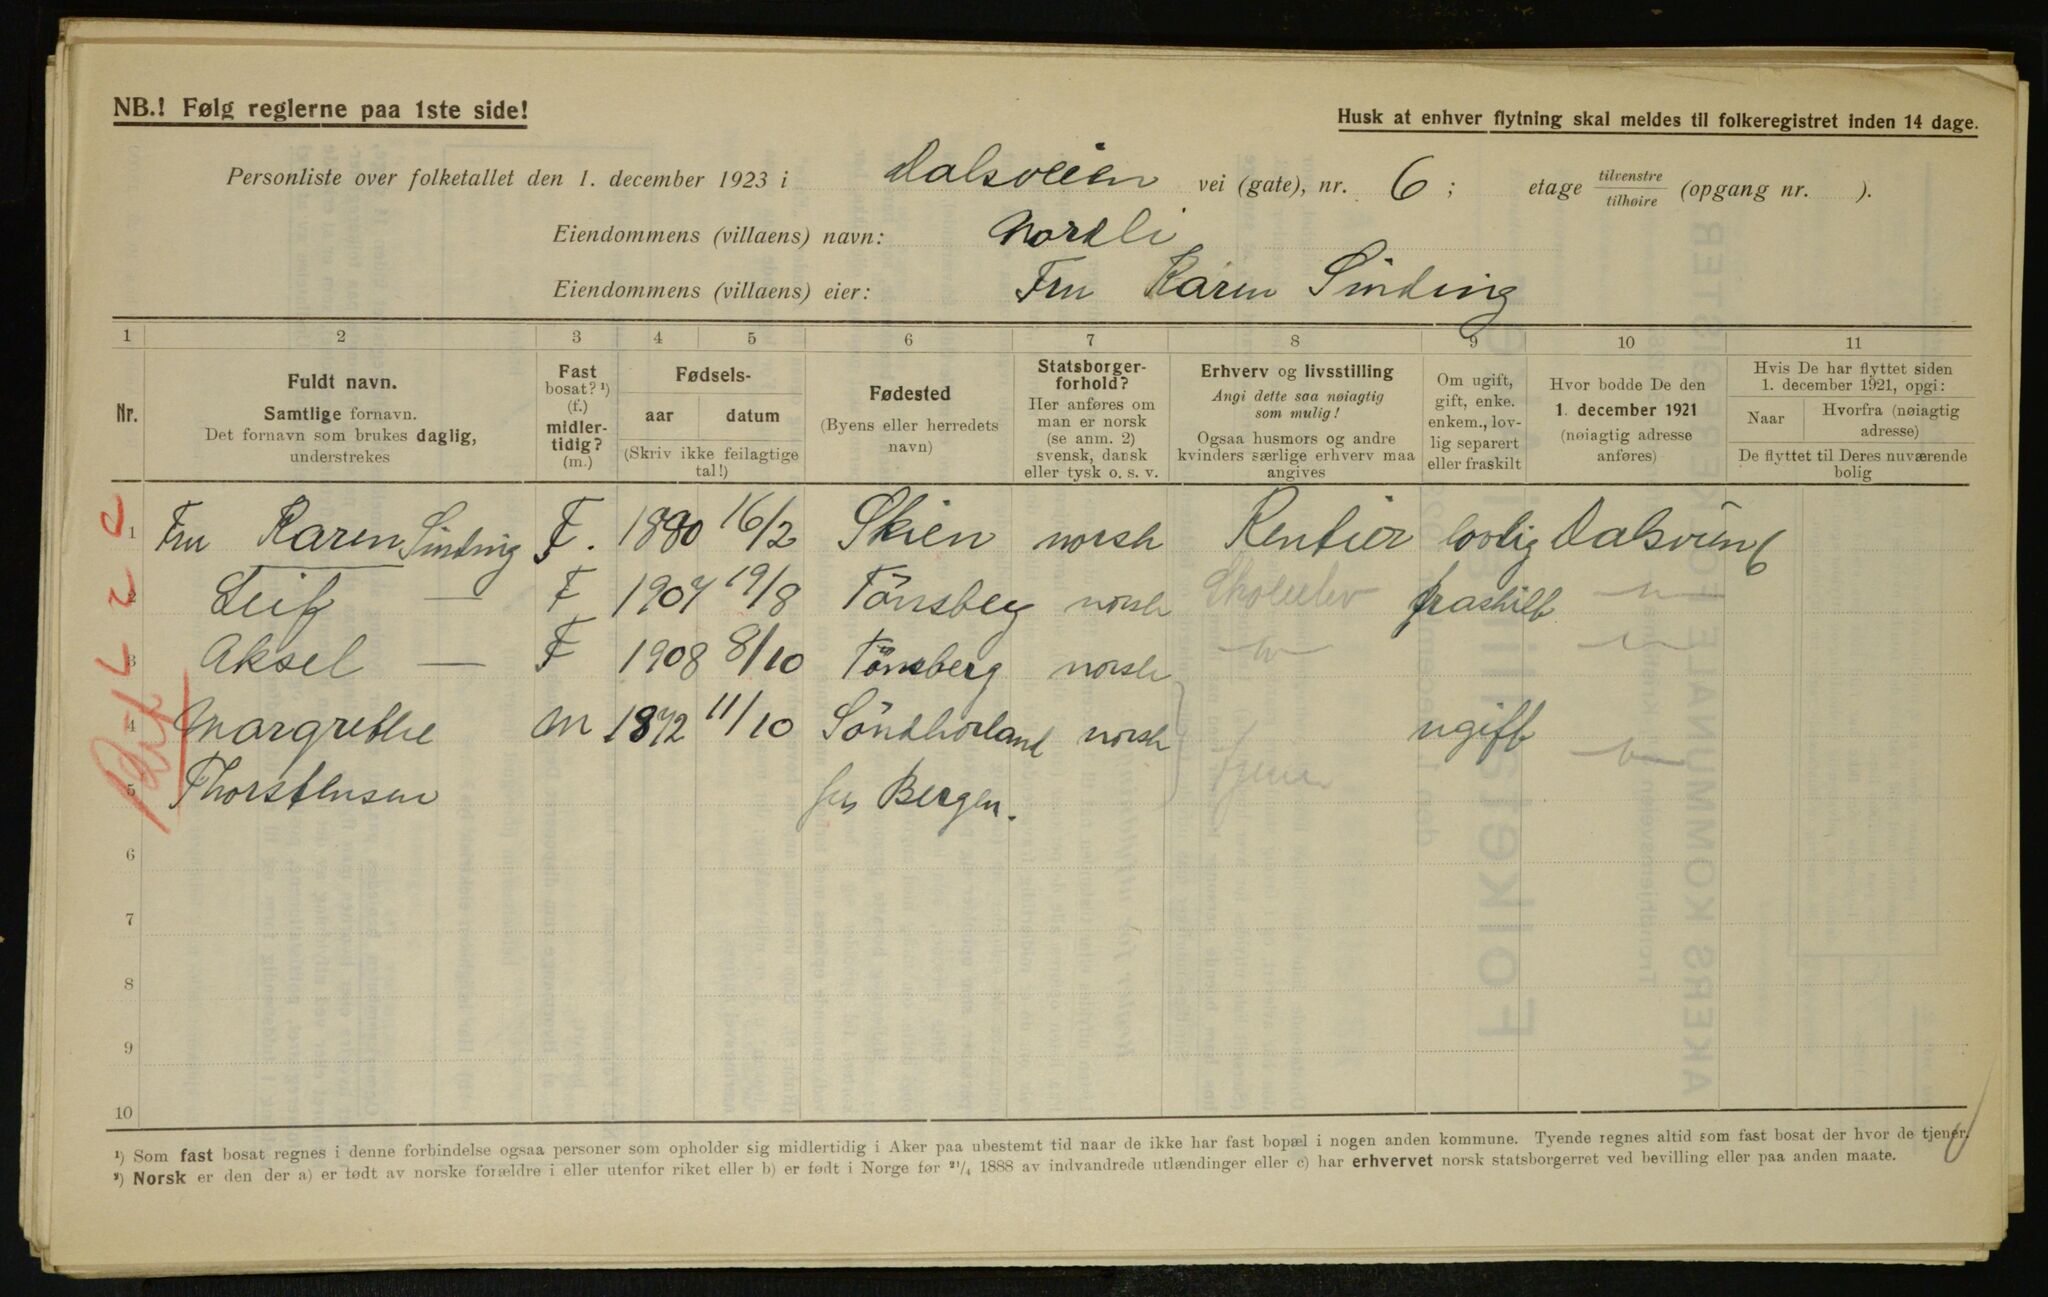 NB.! Følg reglerne paa 1ste side!
Husk at enhver flytning skal meldes til folkeregistret inden 14 dage.
Personliste over folketallet den 1. december 1923 i Dalsveien vei (gate), nr. 6; etage tilvenstre/tilhøire (opgang nr. ).
Eiendommens (villaens) navn: Nordli
Eiendommens (villaens) eier: Fru Karen Sinding
1 2 3 4 5 6 7 8 9 10 11
Nr.
Fuldt navn.
Samtlige fornavn.
Det fornavn som brukes daglig,
understrekes
Fast
bosat? ¹)
(f.)
midler-
tidig?
(m.)
Fødsels-
aar datum
(Skriv ikke feilagtige
tal!)
Fødested
(Byens eller herredets
navn)
Statsborger-
forhold?
Her anføres om
man er norsk
(se anm. 2)
svensk, dansk
eller tysk o. s. v.
Erhverv og livsstilling
Angi dette saa nøiagtig
som mulig!
Ogsaa husmors og andre
kvinders særlige erhverv maa
angives
Om ugift,
gift, enke.
enkem., lov-
lig separert
eller fraskilt
Hvor bodde De den
1. december 1921
(nøiagtig adresse
anføres)
Hvis De har flyttet siden
1. december 1921, opgi:
Naar
Hvorfra (nøiagtig
adresse)
De flyttet til Deres nuværende
bolig
1 Fru Karen Sinding F. 1880 16/2 Skien norsk Rentier lovlig Dalsveien 6
2 Leif — F 1907 19/8 Tönsberg norsk Skoleelev fraskilt —"—
3 Aksel — F 1908 8/10 Tönsberg norsk —"— —"—
4 Margrethe m 1872 11/10 Söndhorland norsk ugift —"—
5 Thorstensen Bergen.
6
7
8
9
10
¹) Som fast bosat regnes i denne forbindelse ogsaa personer som opholder sig midlertidig i Aker paa ubestemt tid naar de ikke har fast bopæl i nogen anden kommune. Tyende regnes altid som fast bosat der hvor de tjener.
²) Norsk er den der a) er født av norske forældre i eller utenfor riket eller b) er født i Norge før ²¹/₄ 1888 av indvandrede utlændinger eller c) har erhvervet norsk statsborgerret ved bevilling eller paa anden maate.